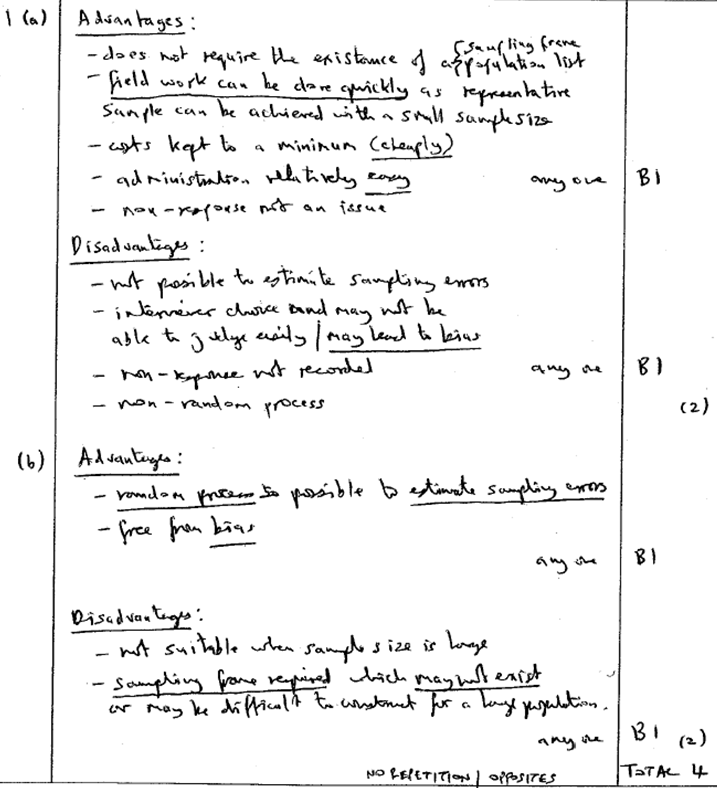 1 (a) Advantages:
- does not require the existance of a { sampling frame
population list
- field work can be done quickly as representative
sample can be achieved with a small sample size
- costs kept to a minimum (cheaply)
- administration relatively easy any one B1
- non-response not an issue
Disadvantages:
- not possible to estimate sampling errors
- interviewer choice and may not be
able to judge easily / may lead to bias
- non-response not recorded any one B1
- non-random process (2)
(b) Advantages:
- random process so possible to estimate sampling errors
- free from bias
any one B1
Disadvantages:
- not suitable when sample size is large
- sampling frame required which may not exist
or may be difficult to construct for a large population.
any one B1 (2)
NO REPETITION / OPPOSITES TOTAL 4